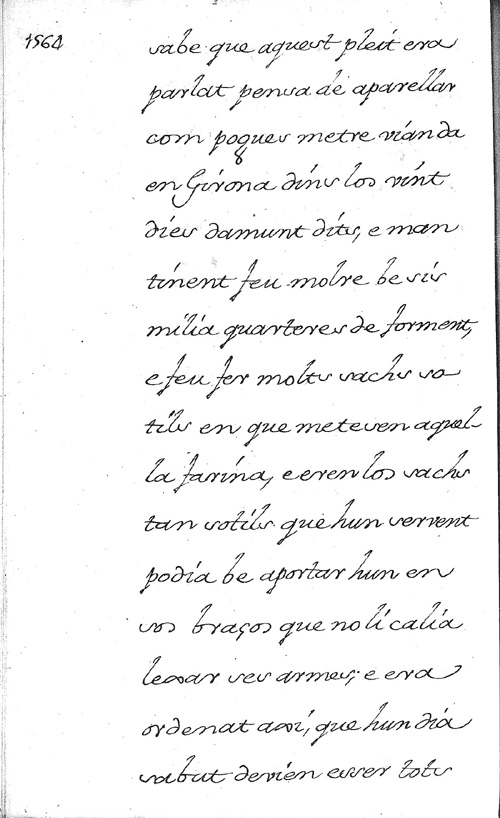 1564
sabe que aquest pleit era
parlat pensa de aparellar
com pogues metre vianda
en Girona dins los vint
dies damunt dits, e man
tinent feu molre be sis
milia quarteres de forment,
e feu fer molts sachs so
tils en que metesen aquel-
la farina, e eren los sachs
tan sotils que hun servent
podia be aportar hun en
sos braços que no li calia
lexar ses armes; e era
ordenat axi, que hun dia
sabut devien esser tots